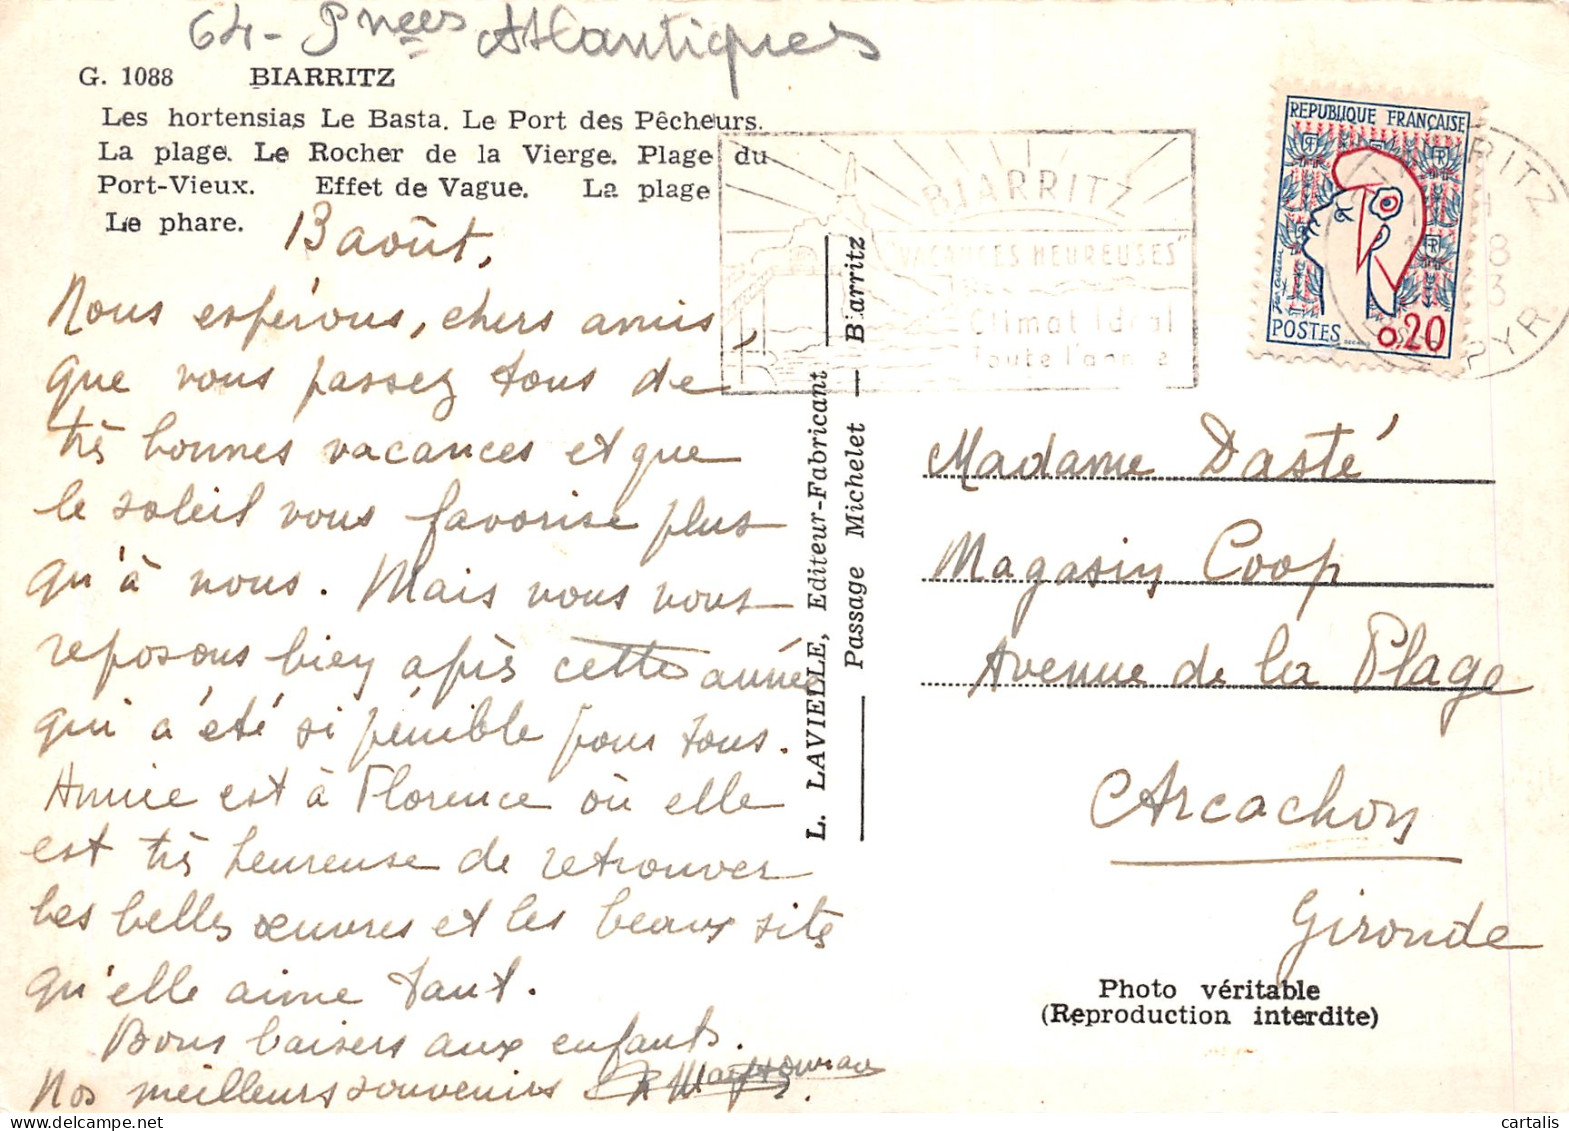 64 - Pnees Atlantiques
G. 1088 BIARRITZ
Les hortensias Le Basta. Le Port des Pêcheurs.
La plage. Le Rocher de la Vierge. Plage du
Port-Vieux. Effet de Vague. La plage
Le phare.
13 août,
Nous espérons, chers amis
que vous passez tous de
très bonnes vacances et que
le soleil vous favorise plus
qu'à nous. Mais nous nous
reposons bien après cette année
qui a été si pénible pour tous.
Annie est à Florence où elle
est très heureuse de retrouver
les belles œuvres et les beaux sites
qu'elle aime tant.
Bons baisers aux enfants.
Nos meilleurs souvenirs
L. LAVIELLE, Editeur-Fabricant
Passage Michelet — Biarritz
BIARRITZ
"VACANCES HEUREUSES"
Climat Idéal
Toute l'année
REPUBLIQUE FRANÇAISE
POSTES 0,20
Madame Dasté
Magasin Coop
Avenue de la Plage
Arcachon
Gironde
Photo véritable
(Reproduction interdite)
cartalis